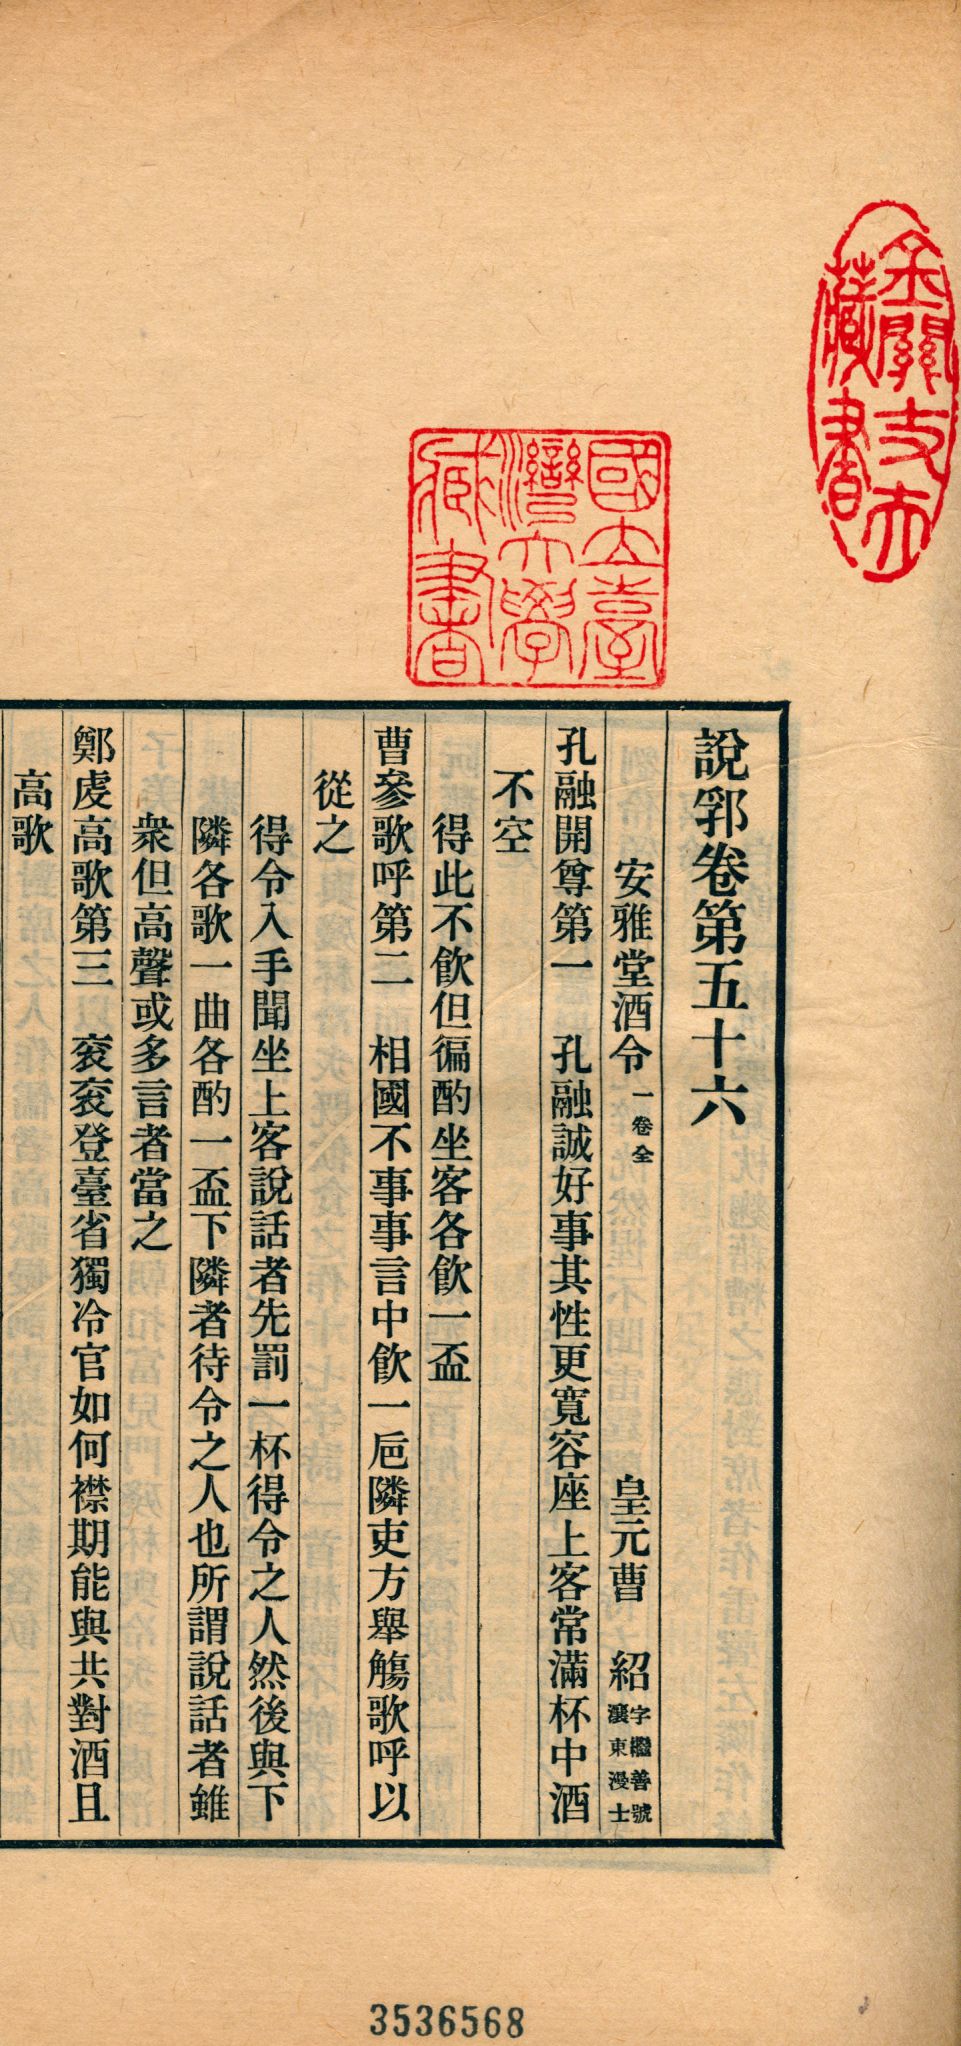 說郛卷第五十六
安雅堂酒令 一卷全 皇元曹 紹 字繼善號瀼東漫士
孔融開尊第一 孔融誠好事其性更寬容座上客常滿杯中酒
不空
得此不飮但徧酌坐客各飮一盃
曹參歌呼第二 相國不事事言中飮一巵隣吏方舉觴歌呼以
從之
得令入手聞坐上客說話者先罰一杯得令之人然後與下
隣各歌一曲各酌一盃下隣者待令之人也所謂說話者雖
衆但高聲或多言者當之
鄭虔高歌第三 袞袞登臺省獨冷官如何襟期能與共對酒且
高歌
國立臺
灣大學
藏書
藏書
3536568